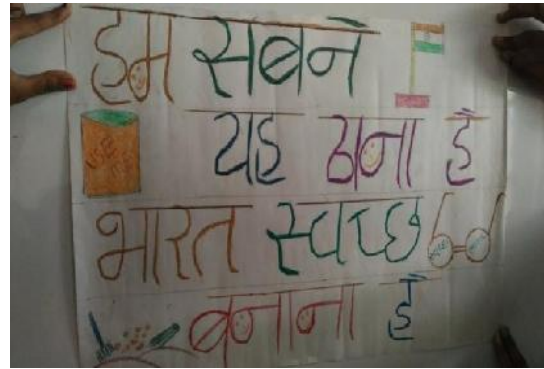 हम सबने
USE ME
यह ठाना है
भारत स्वच्छ
बनाना है